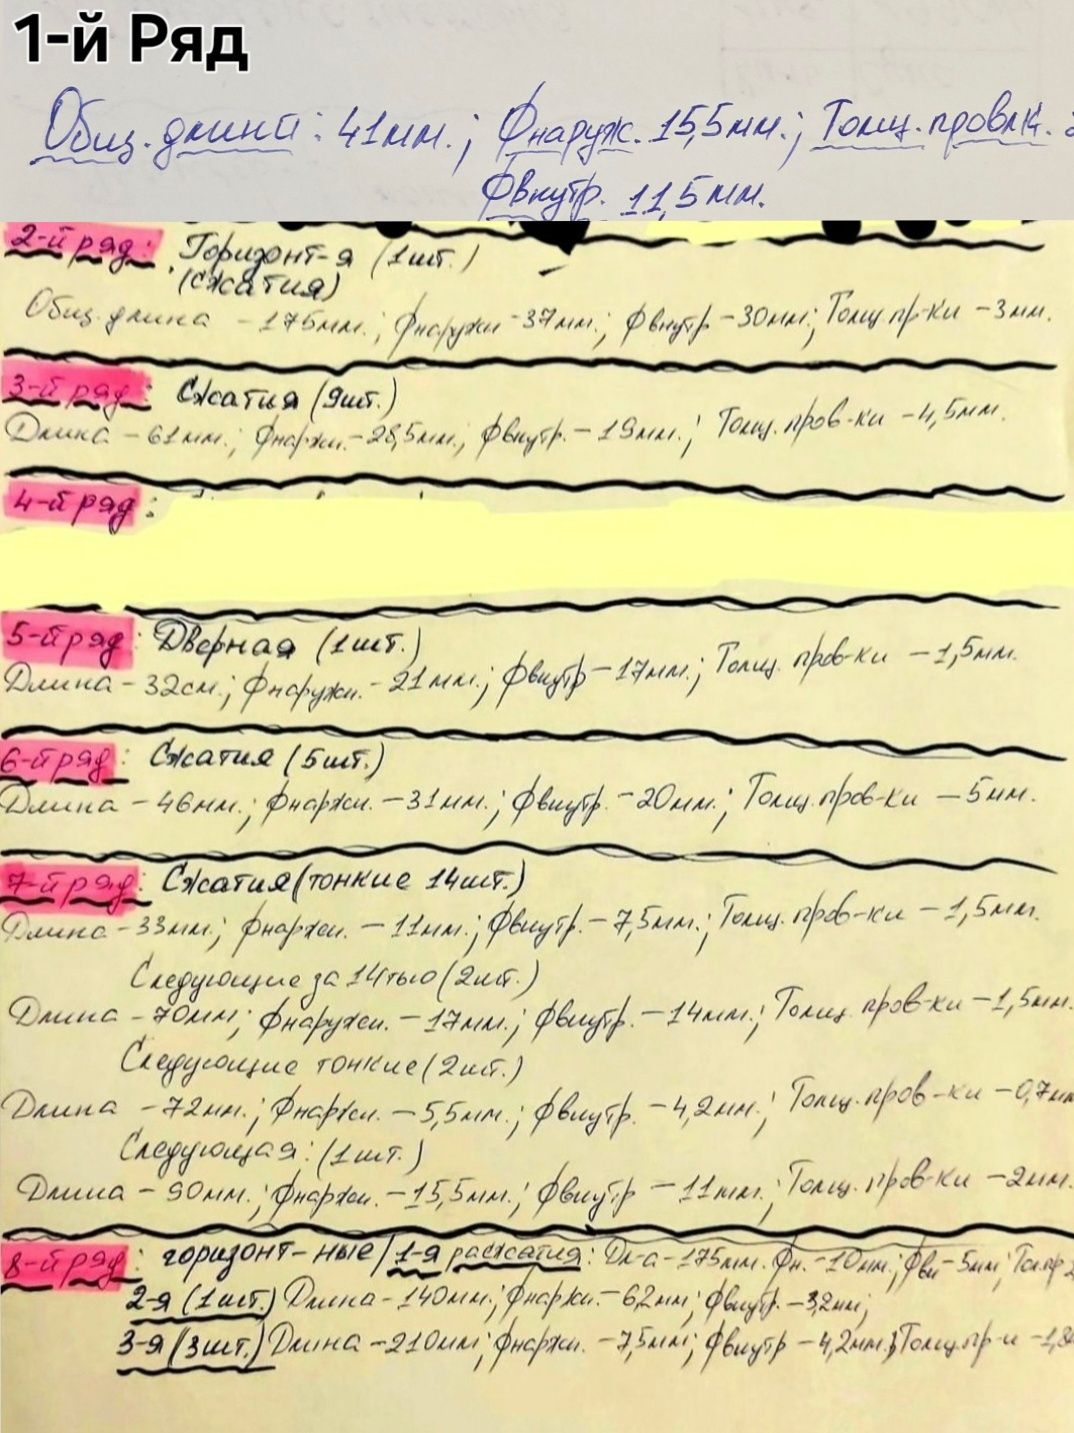 1-й Ряд
Общ. длина: 41мм.; Фнаруж. 15,5мм.; Толщ. провлк.
Фвнутр. 11,5мм.
2-й ряд: Горизонт-я (1шт.)
(сжатия)
Общ. длина - 175мм.; Фнаружн - 37мм.; Фвнутр - 30мм; Толщ пр-ки - 3мм.
3-й ряд: Сжатия (9шт.)
Длина - 61мм.; Фнаржн. - 28,5мм.; Фвнутр. - 19мм.; Толщ. пров-ки - 4,5мм.
4-й ряд:
5-й ряд: Дверная (1шт.)
Длина - 32см.; Фнаружн. - 21мм.; Фвнутр - 17мм.; Толщ. пров-ки - 1,5мм.
6-й ряд: Сжатия (5шт.)
Длина - 46мм.; Фнаржн. - 31мм.; Фвнутр. - 20мм.; Толщ. пров-ки - 5мм.
7-й ряд: Сжатия (тонкие 14шт.)
Длина - 33мм.; Фнаржн. - 11мм.; Фвнутр. - 7,5мм.; Толщ. пров-ки - 1,5мм.
Следующие за 14тью (2шт.)
Длина - 70мм; Фнаружн. - 17мм.; Фвнутр. - 14мм.; Толщ. пров-ки - 1,5мм.
Следующие тонкие (2шт.)
Длина - 72мм.; Фнаржн. - 5,5мм.; Фвнутр. - 4,2мм.; Толщ. пров-ки - 0,7мм
Следующая: (1шт.)
Длина - 90мм.; Фнаржн. - 15,5мм.; Фвнутр - 11мм.; Толщ. пров-ки - 2мм.
8-й ряд: горизонт-ные / 1-я расжатия: Дл-а - 175мм. Фн. - 10мм.; Фвн - 5мм; Тол.пр
2-я (1шт.) Длина - 140мм.; Фнаржн. - 62мм; Фвнутр. - 3,2мм;
3-я (3шт.) Длина - 210мм; Фнаржн. - 7,5мм; Фвнутр - 4,2мм.; Толщ.пр-и - 1,8